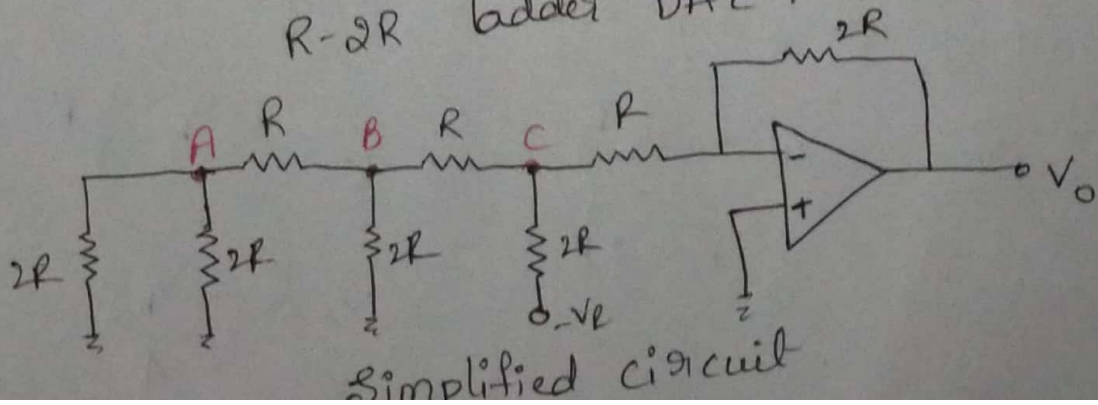 R-2R ladder DAC
2R
A R B R C R
-
+
V₀
2R 2R 2R 2R
-VR
Simplified circuit